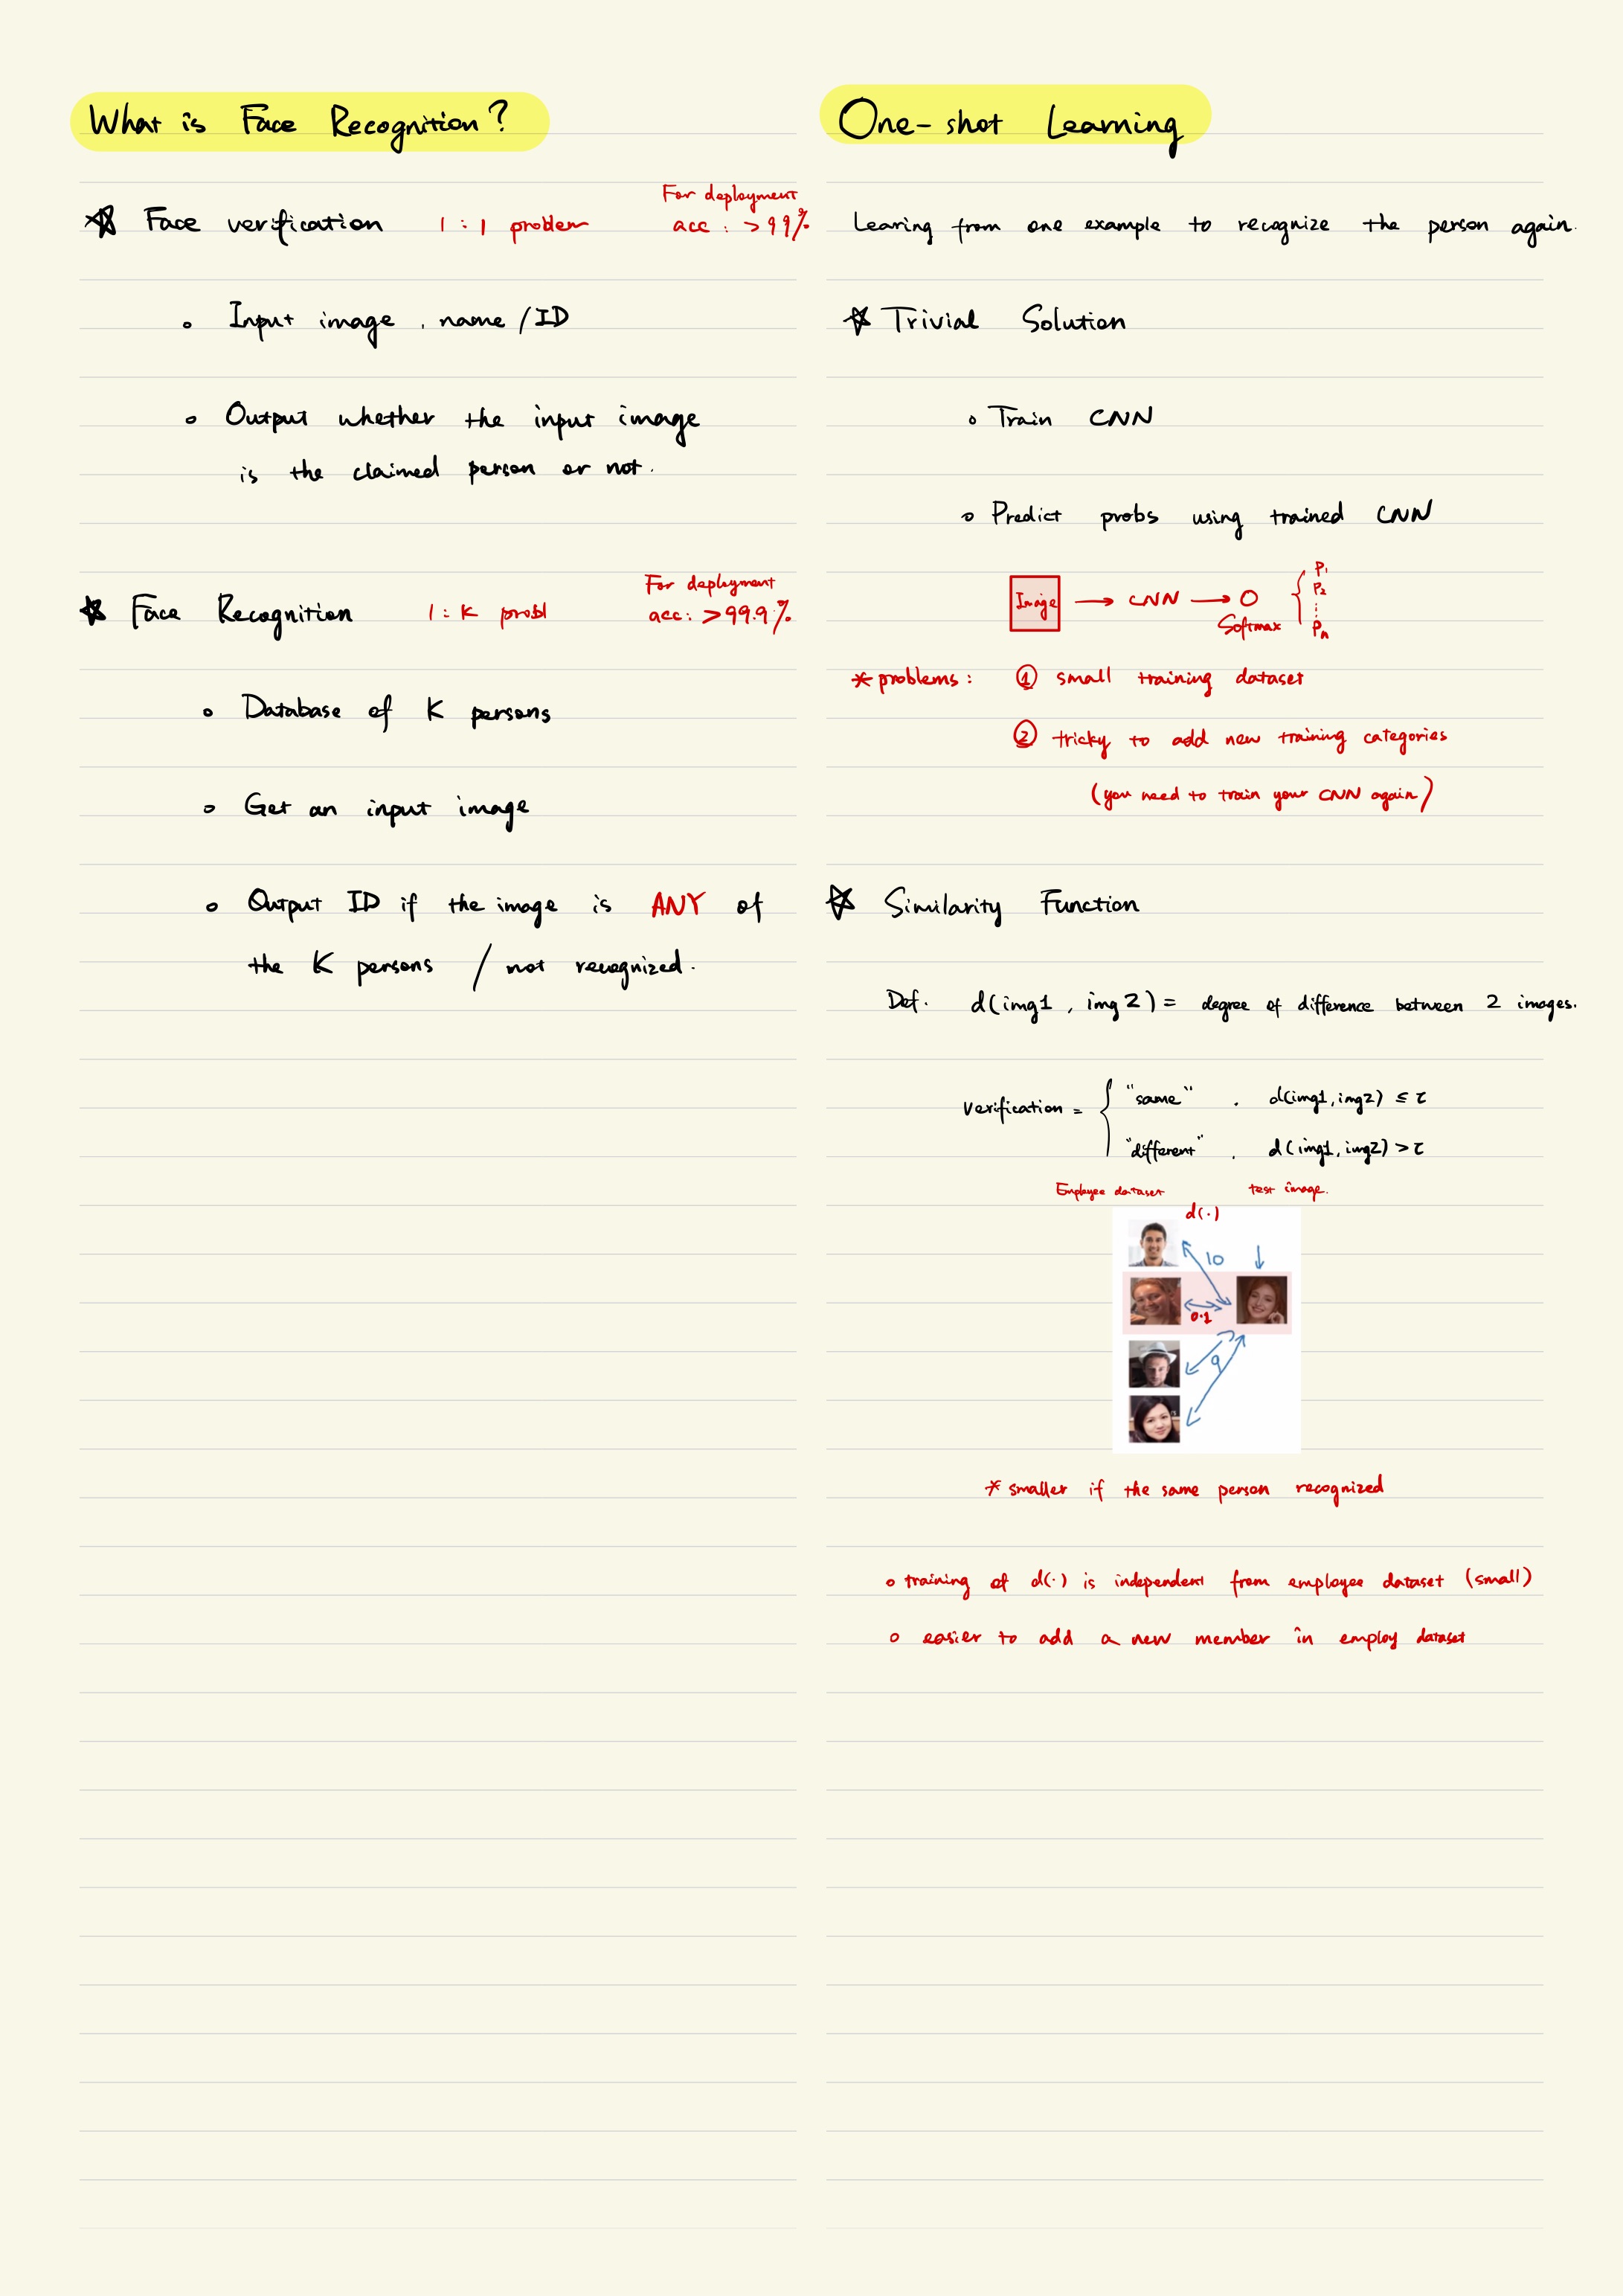 What is Face Recognition?
Face verification 1 : 1 problem For deployment acc : >99%
Input image , name / ID
Output whether the input image
is the claimed person or not.
Face Recognition 1 : K probl For deployment acc: >99.9%
Database of K persons
Get an input image
Output ID if the image is ANY of
the K persons / not recognized.
One-shot Learning
Learing from one example to recognize the person again.
Trivial Solution
Train CNN
Predict probs using trained CNN
Image → CNN → O Softmax { P1 P2 ⋮ Pn
* problems : ① small training dataset
② tricky to add new training categories
(you need to train your CNN again)
Similarity Function
Def. d(img1 , img 2) = degree of difference between 2 images.
Verification = { "same" , d(img1, img2) ≤ τ
"different" , d(img1, img2) > τ
Employee dataset test image.
d(·)
10
0.1
9
* smaller if the same person recognized
training of d(·) is independent from employee dataset (small)
easier to add a new member in employ dataset